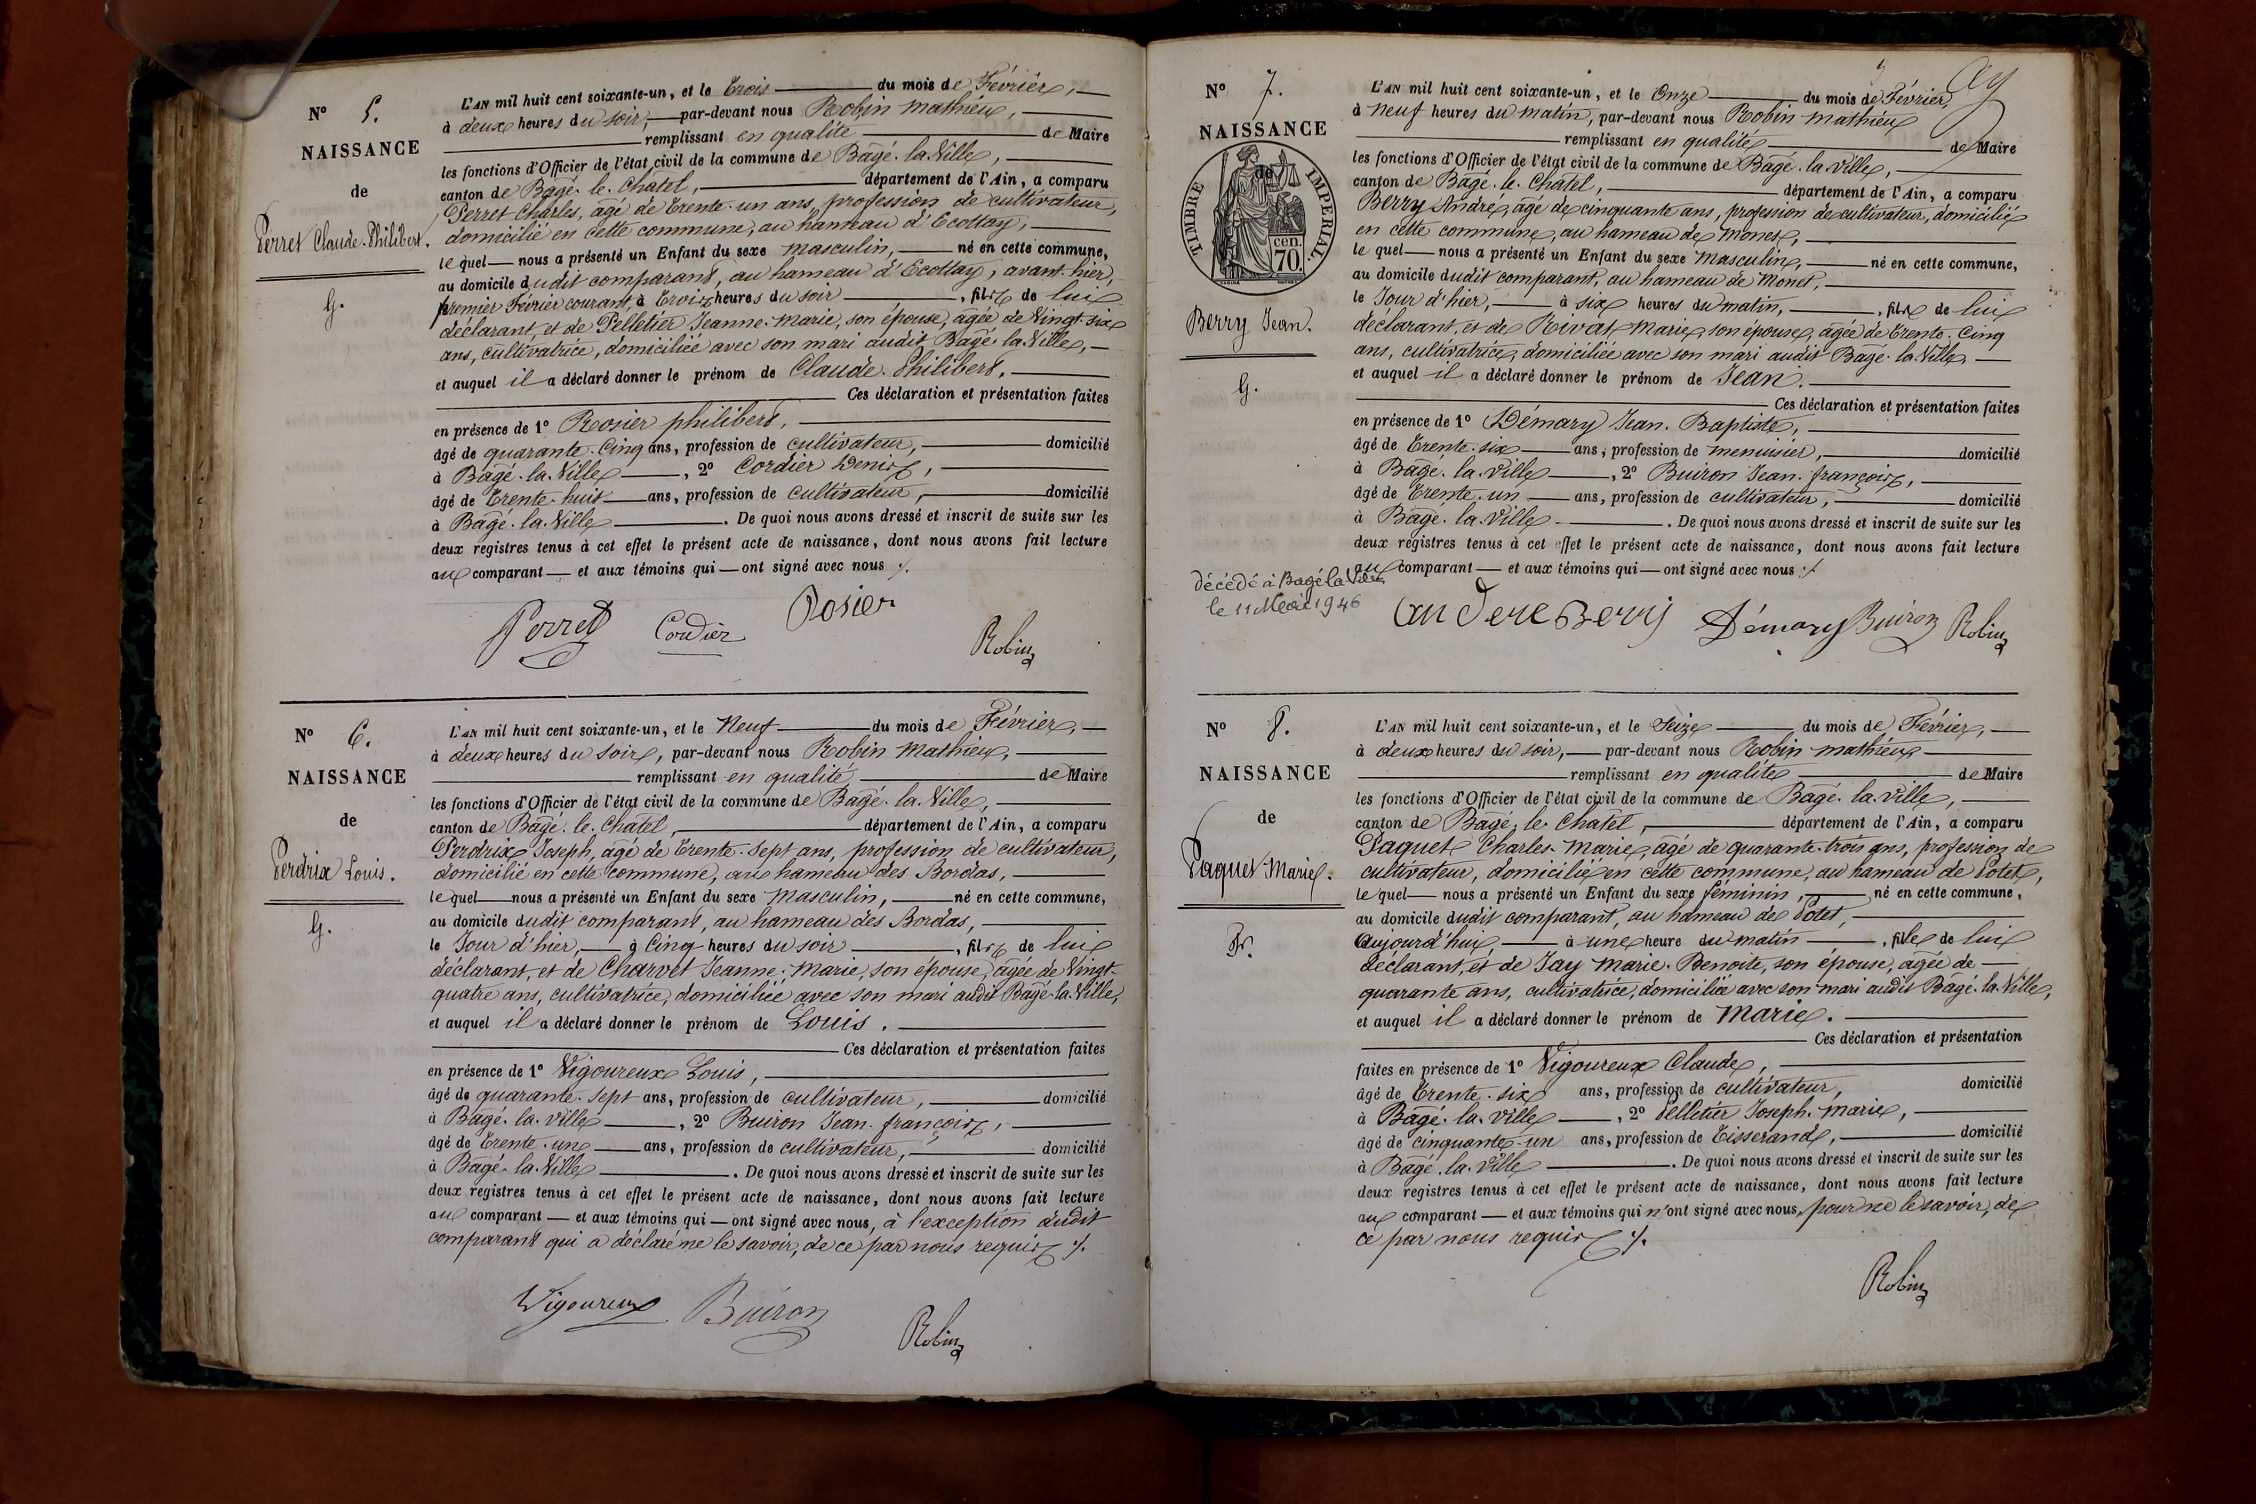 N° 5.
NAISSANCE
de
Perret Claude-Philibert.
G.
L'AN mil huit cent soixante-un, et le Trois du mois de Février,
à deux heures du soir, par-devant nous Robin Mathieu,
remplissant en qualité de Maire
les fonctions d'Officier de l'état civil de la commune de Bâgé-la-Ville,
canton de Bâgé-le-Châtel, département de l'Ain, a comparu
Perret Charles, âgé de Trente-un ans, profession de cultivateur,
domicilié en cette commune, au hameau d'Ecottay,
le quel nous a présenté un Enfant du sexe masculin, né en cette commune,
au domicile dudit comparant, au hameau d'Ecottay, avant-hier,
premier Février courant, à Trois heures du soir, fils de lui
déclarant, et de Pelletier Jeanne-Marie, son épouse, âgée de Vingt-six
ans, cultivatrice, domiciliée avec son mari audit Bâgé-la-Ville,
et auquel il a déclaré donner le prénom de Claude-Philibert.
Ces déclaration et présentation faites
en présence de 1° Rosier philibert,
âgé de quarante-cinq ans, profession de cultivateur, domicilié
à Bâgé-la-Ville, 2° Cordier Denis,
âgé de Trente-huit ans, profession de cultivateur, domicilié
à Bâgé-la-Ville. De quoi nous avons dressé et inscrit de suite sur les
deux registres tenus à cet effet le présent acte de naissance, dont nous avons fait lecture
au comparant et aux témoins qui ont signé avec nous ./.
Perret Cordier Rosier
Robin
N° 6.
NAISSANCE
de
Perdrix Louis.
G.
L'AN mil huit cent soixante-un, et le Neuf du mois de Février,
à deux heures du soir, par-devant nous Robin Mathieu,
remplissant en qualité de Maire
les fonctions d'Officier de l'état civil de la commune de Bâgé-la-Ville,
canton de Bâgé-le-Châtel, département de l'Ain, a comparu
Perdrix Joseph, âgé de Trente-sept ans, profession de cultivateur,
domicilié en cette commune, au hameau des Bordas,
le quel nous a présenté un Enfant du sexe masculin, né en cette commune,
au domicile dudit comparant, au hameau des Bordas,
le Jour d'hier, à Cinq heures du soir, fils de lui
déclarant, et de Charvet Jeanne-Marie, son épouse, âgée de Vingt-
quatre ans, cultivatrice, domiciliée avec son mari audit Bâgé-la-Ville,
et auquel il a déclaré donner le prénom de Louis.
Ces déclaration et présentation faites
en présence de 1° Vigoureux Louis,
âgé de quarante-sept ans, profession de cultivateur, domicilié
à Bâgé-la-Ville, 2° Buiron Jean-françois,
âgé de Trente-un ans, profession de cultivateur, domicilié
à Bâgé-la-Ville. De quoi nous avons dressé et inscrit de suite sur les
deux registres tenus à cet effet le présent acte de naissance, dont nous avons fait lecture
au comparant et aux témoins qui ont signé avec nous, à l'exception dudit
comparant qui a déclaré ne le savoir, de ce par nous requis ./.
Vigoureux Buiron
Robin
N° 7.
NAISSANCE
de
TIMBRE IMPERIAL
70 cen.
Berry Jean.
G.
L'AN mil huit cent soixante-un, et le Onze du mois de Février,
à Neuf heures du matin, par-devant nous Robin Mathieu
remplissant en qualité de Maire
les fonctions d'Officier de l'état civil de la commune de Bâgé-la-Ville,
canton de Bâgé-le-Châtel, département de l'Ain, a comparu
Berry André, âgé de cinquante ans, profession de cultivateur, domicilié
en cette commune, au hameau de Monet,
le quel nous a présenté un Enfant du sexe masculin, né en cette commune,
au domicile dudit comparant, au hameau de Monet,
le Jour d'hier, à six heures du matin, fils de lui
déclarant, et de Rivat Marie, son épouse, âgée de Trente-Cinq
ans, cultivatrice, domiciliée avec son mari audit Bâgé-la-Ville,
et auquel il a déclaré donner le prénom de Jean.
Ces déclaration et présentation faites
en présence de 1° Démary Jean-Baptiste,
âgé de Trente-six ans, profession de menuisier, domicilié
à Bâgé-la-Ville, 2° Buiron Jean-françois,
âgé de Trente-un ans, profession de cultivateur, domicilié
à Bâgé-la-Ville. De quoi nous avons dressé et inscrit de suite sur les
deux registres tenus à cet effet le présent acte de naissance, dont nous avons fait lecture
au comparant et aux témoins qui ont signé avec nous ./.
décédé à Bagé la Ville
le 11 Mai 1946
andere Berry Démary Buiron Robin
N° 8.
NAISSANCE
de
Paquet Marie.
F.
L'AN mil huit cent soixante-un, et le Seize du mois de Février,
à deux heures du soir, par-devant nous Robin Mathieu
remplissant en qualité de Maire
les fonctions d'Officier de l'état civil de la commune de Bâgé-la-Ville,
canton de Bâgé-le-Châtel, département de l'Ain, a comparu
Paquet Charles-Marie, âgé de quarante-trois ans, profession de
cultivateur, domicilié en cette commune, au hameau de Potet,
le quel nous a présenté un Enfant du sexe féminin, né en cette commune,
au domicile dudit comparant, au hameau de Potet,
aujourd'hui, à une heure du matin, fille de lui
déclarant, et de Jay Marie-Benoite, son épouse, âgée de
quarante ans, cultivatrice, domiciliée avec son mari audit Bâgé-la-Ville,
et auquel il a déclaré donner le prénom de Marie.
Ces déclaration et présentation
faites en présence de 1° Vigoureux Claude,
âgé de Trente-six ans, profession de cultivateur, domicilié
à Bâgé-la-Ville, 2° Pelletier Joseph-Marie,
âgé de cinquante-un ans, profession de Tisserand, domicilié
à Bâgé-la-Ville. De quoi nous avons dressé et inscrit de suite sur les
deux registres tenus à cet effet le présent acte de naissance, dont nous avons fait lecture
au comparant et aux témoins qui n'ont signé avec nous, pour ne le savoir, de
ce par nous requis ./.
Robin